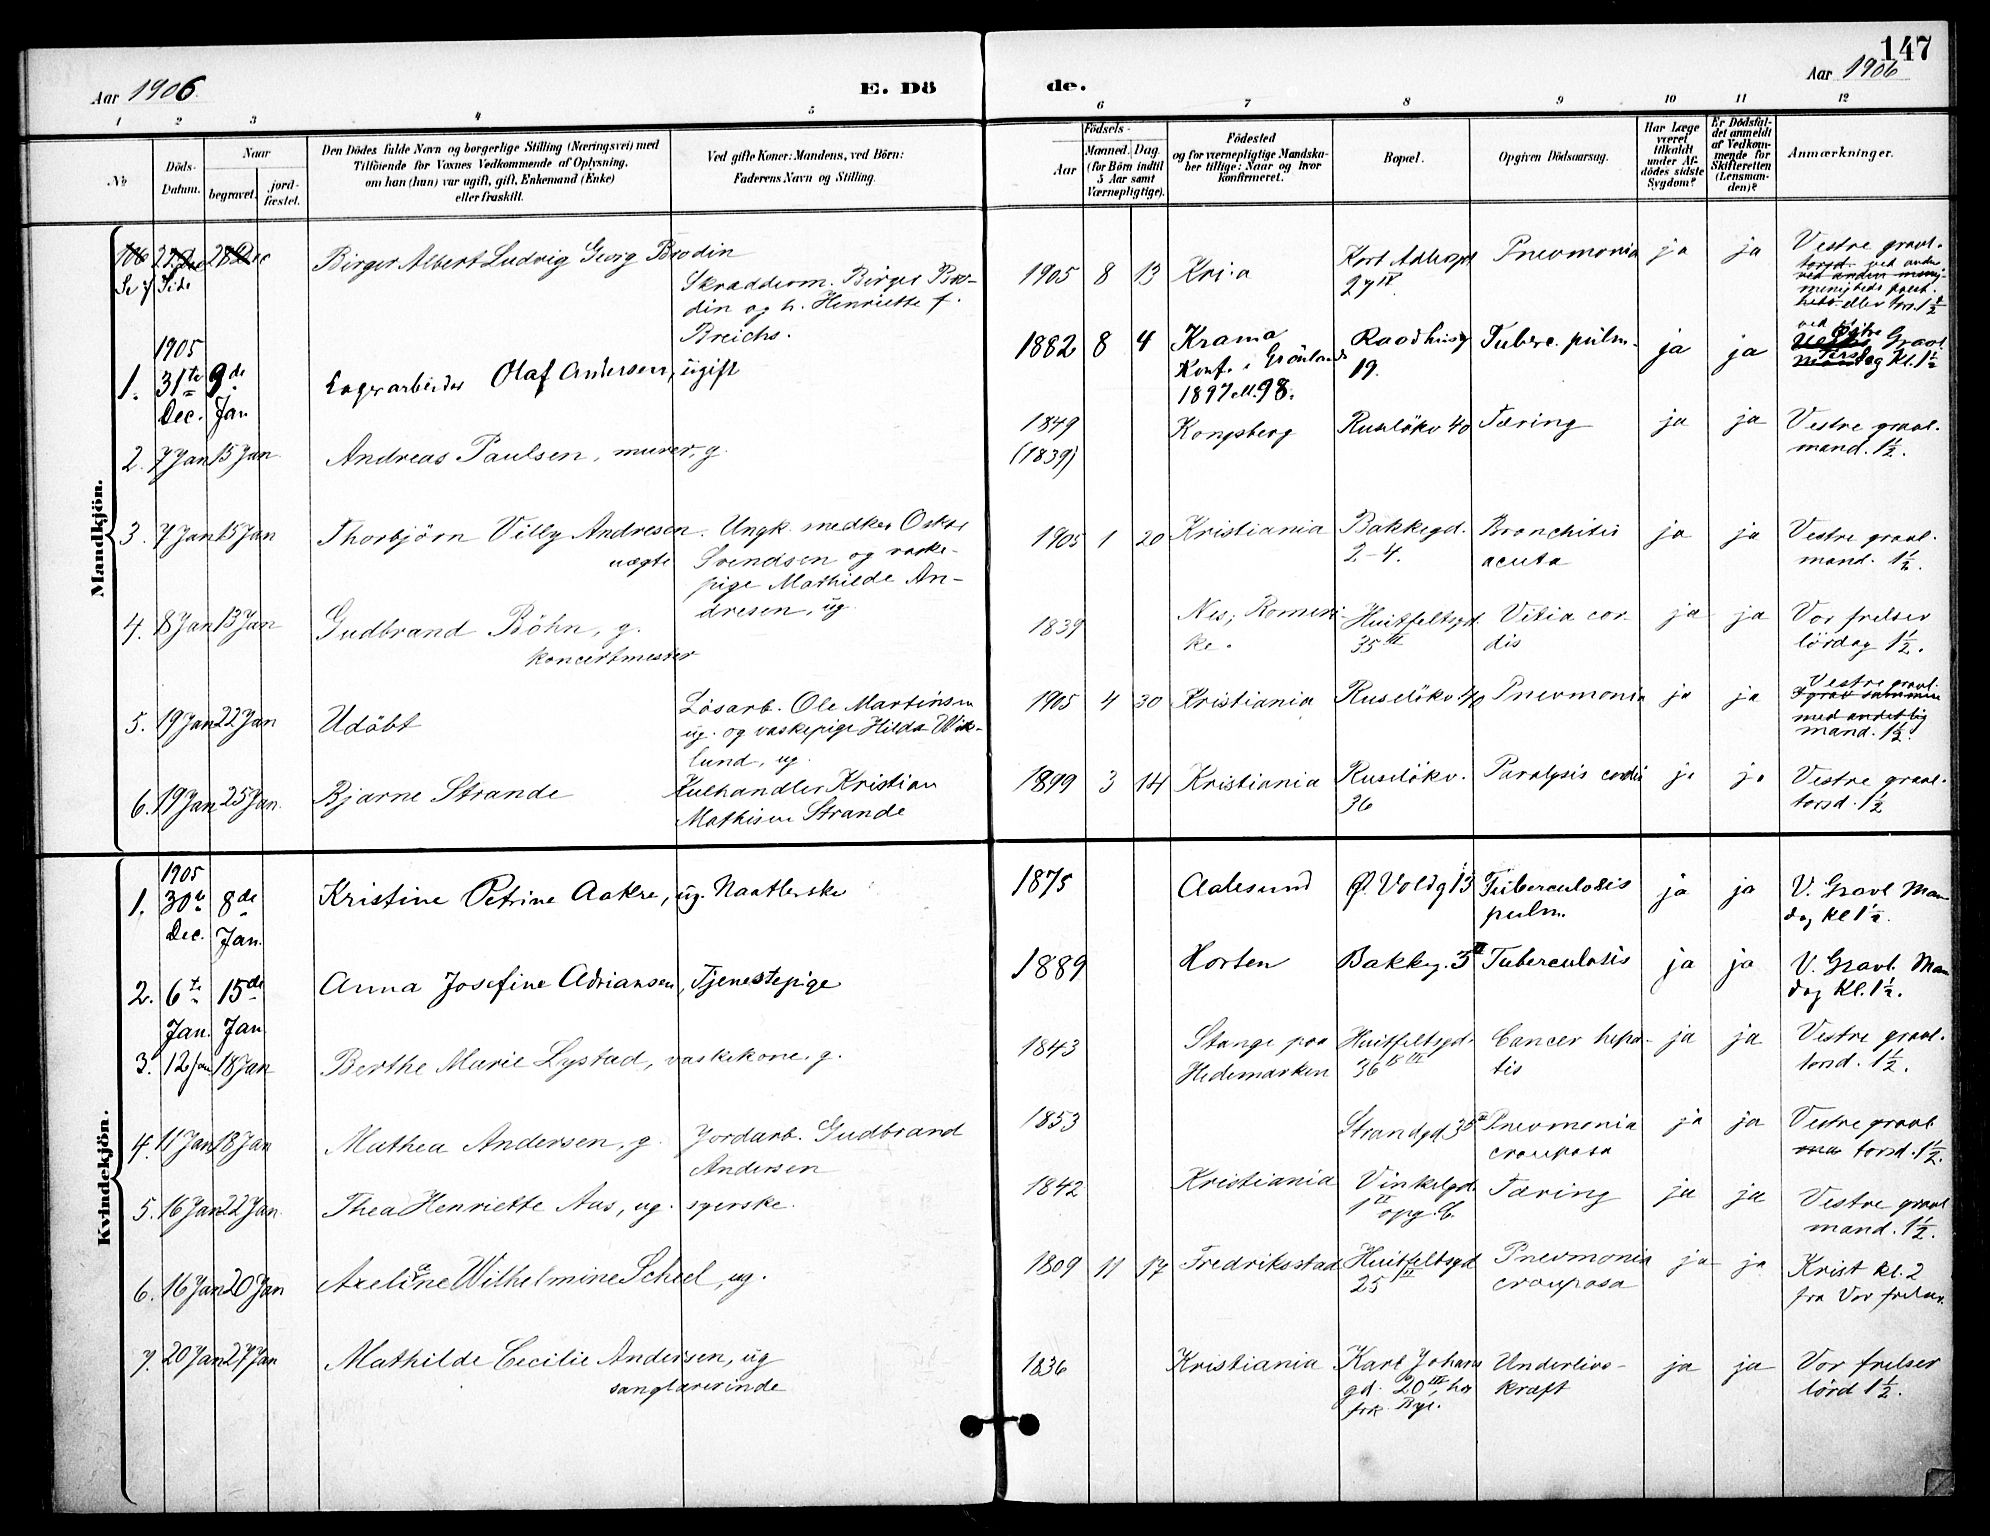 147
Aar 1906
E. Döde.
Aar 1906
1 2 3 4 5 6 7 8 9 10 11 12
No
Döds-Datum.
Naar
begravet.
jord-fæstet.
Den Dödes fulde Navn og borgerlige Stilling (Næringsvei) med
Tilföiende for Voxnes Vedkommende af Oplysning,
om han (hun) var ugift, gift, Enkemand (Enke)
eller fraskilt.
Ved gifte Koner: Mandens, ved Börn:
Faderens Navn og Stilling.
Födsels-
Aar
Maaned. Dag.
(for Börn indtil
5 Aar samt
Værnepligtige).
Födested
og for værnepligtige Mandska-
ber tillige: Naar og hvor
konfirmeret.
Bopæl.
Opgiven Dödsaarsag.
Har Læge
været
tilkaldt
under Af-
dödes sidste
Sygdom?
Er Dödsfal-
det anmeldt
af Vedkom-
mende for
Skifteretten
(Lensman-
den)?
Anmærkninger.
Mandkjön.
106 27 Dec 28 Dec Birger Albert Ludvig Georg Brodin
Skrædderm. Birger Bro-
din og h. Henriette f.
Breichs.
1905 8 13 Kri:a Kort Adlersgd
27 IV Pnevmonia ja ja Vestre gravl.
1905
1. 31te Dec. 9de Jan Lagerarbeider Olaf Andersen, ugift
1882 8 4 Krania
Konf. i Grönland
1897 ell. 98. Raadhusg
19. Tuberc. pulm. ja ja Gravl
Kl. 1½
2. 7 Jan 15 Jan Andreas Paulsen, murer, g.
1849
(1839) Kongsberg Ruselökv 40 Tæring ja ja Vestre gravl.
mand. 1½.
3. 7 Jan 15 Jan Thorbjörn Villy Andresen
uægte
Ungk. medker Oskar
Svendsen og vaske-
pige Mathilde An-
dresen, ug.
1905 1 20 Kristiania Bakkegd.
2-4. Bronchitis
acuta ja ja Vestre gravl.
mand. 1½.
4. 8 Jan 13 Jan Gudbrand Böhn, g.
koncertmester
1839 Nes, Romeri-
ke. Huitfeltsgd
35 III Vitia cor-
dis ja ja Vor frelser
lördag 1½.
5. 19 Jan 22 Jan Udöbt
Lösarb. Ole Martinsen
ug. og vaskepige Hilda Wik-
lund, ug.
1905 4 30 Kristiania Ruselökv. 40 Pnevmonia ja ja Vestre gravl.
I grav sammen
med andet lig
mand. 1½.
6. 19 Jan 25 Jan. Bjarne Strande
Kulhandler Kristian
Mathisen Strande
1899 3 14 Kristiania Ruselökv.
36 Paralysis cordis ja ja Vestre gravl.
torsd. 1½
Kvindekjön.
1905
1. 30te Dec. 8de Jan. Kristine Petrine Aakre, ug. Naatlerske
1875 Aalesund Ø. Voldg 13 Tuberculosis
pulm. ja ja V. Gravl Man
dag Kl 1½.
2. 6te Jan. 15de Jan. Anna Josefine Adriansen, Tjenestepige
1889 Horten Bakkeg. 3 II Tuberculosis ja ja V. Gravl. Man
dag Kl. 1½.
3. 12 Jan 18 Jan Berthe Marie Lystad, vaskekone, g.
1843 Stange paa
Hedemarken Huitfeltsgd.
36 Cancer hepa-
tis ja ja Vestre gravl.
torsd. 1½.
4. 11 Jan 18 Jan Mathea Andersen, g. Jordarb. Gudbrand
Andersen
1853 Strandgd. 35 Pnevmonia
crouposa ja ja Vestre gravl
torsd. 1½.
5. 16 Jan 22 Jan. Thea Henriette Aas, ug. syerske.
1842 Kristiania Vinkelgd.
1 opg. 6. Tæring ja ja Vestre gravl
mand. 1½.
6. 16 Jan 20 Jan Axeline Wilhelmine Scheel, ug.
1809 11 17 Fredriksstad Huitfeltsgd
25 II Pnevmonia
crouposa ja ja Krist kl. 2
fra Vor frelser.
7. 20 Jan 27 Jan Mathilde Cecilie Andersen, ug
sanglærerinde
1836 Kristiania Karl Johans
gd. 20 III, hos
frk. Underlivs-
kræft ja ja Vor frelser
lörd 1½.